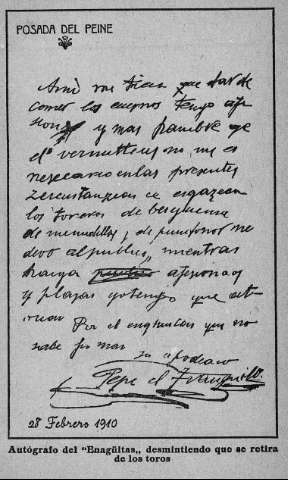 POSADA DEL PEINE
Ami me tien que dar de
comer los cuernos tengo afi
sion y mas hambre qe
de vermuttens no me es
nesecario en las presentes
zircustanzias ce
los toreros de berguensa
de y de pundonor me
devo al publico, mientras
haiga afisionaos
y plazas yo tengo que
Por el enaguitas que no
sabe firmar
su apoderao
Pepe el
28 Febrero 1910
Autógrafo del "Enagüitas„ desmintiendo que se retira
de los toros